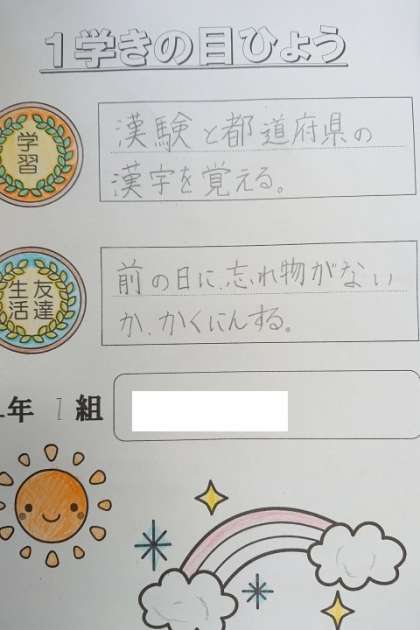 1学きの目ひょう
学習
漢験と都道府県の
漢字を覚える。
友達
生活
前の日に、忘れ物がない
か、かくにんする。
年 1 組